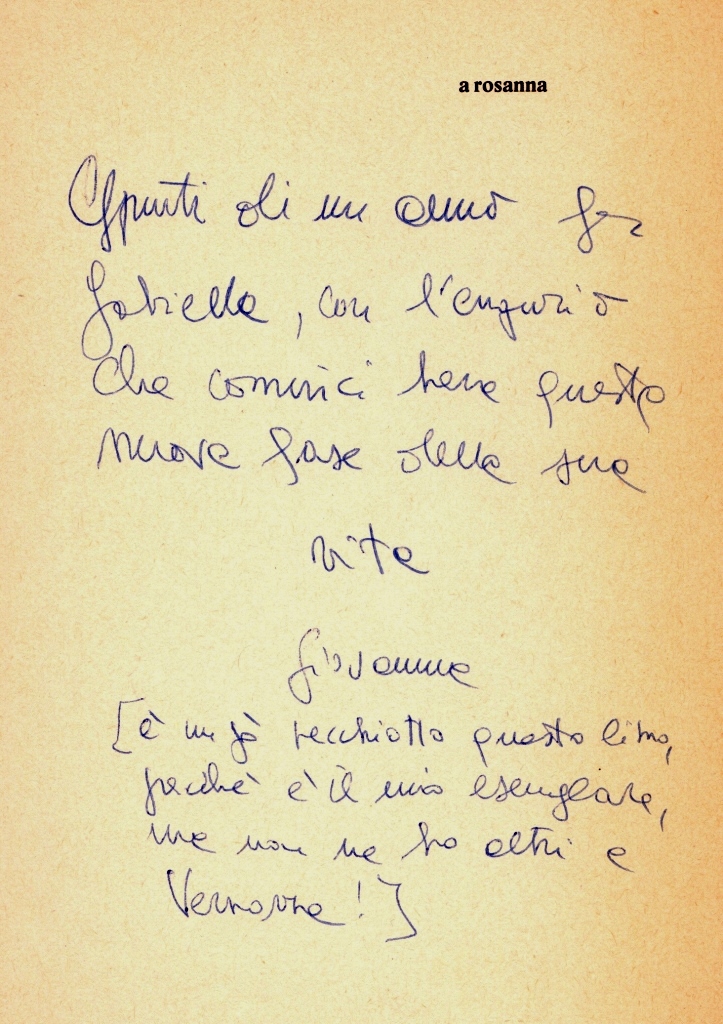 a rosanna
Appunti di un anno per
Gabriella, con l'augurio
che cominci bene questa
nuova fase della sua
vita
Giovanna
[è un pò vecchiotto questo libro,
perchè è il mio esemplare,
ma non ne ho altri a
Vernazza!]